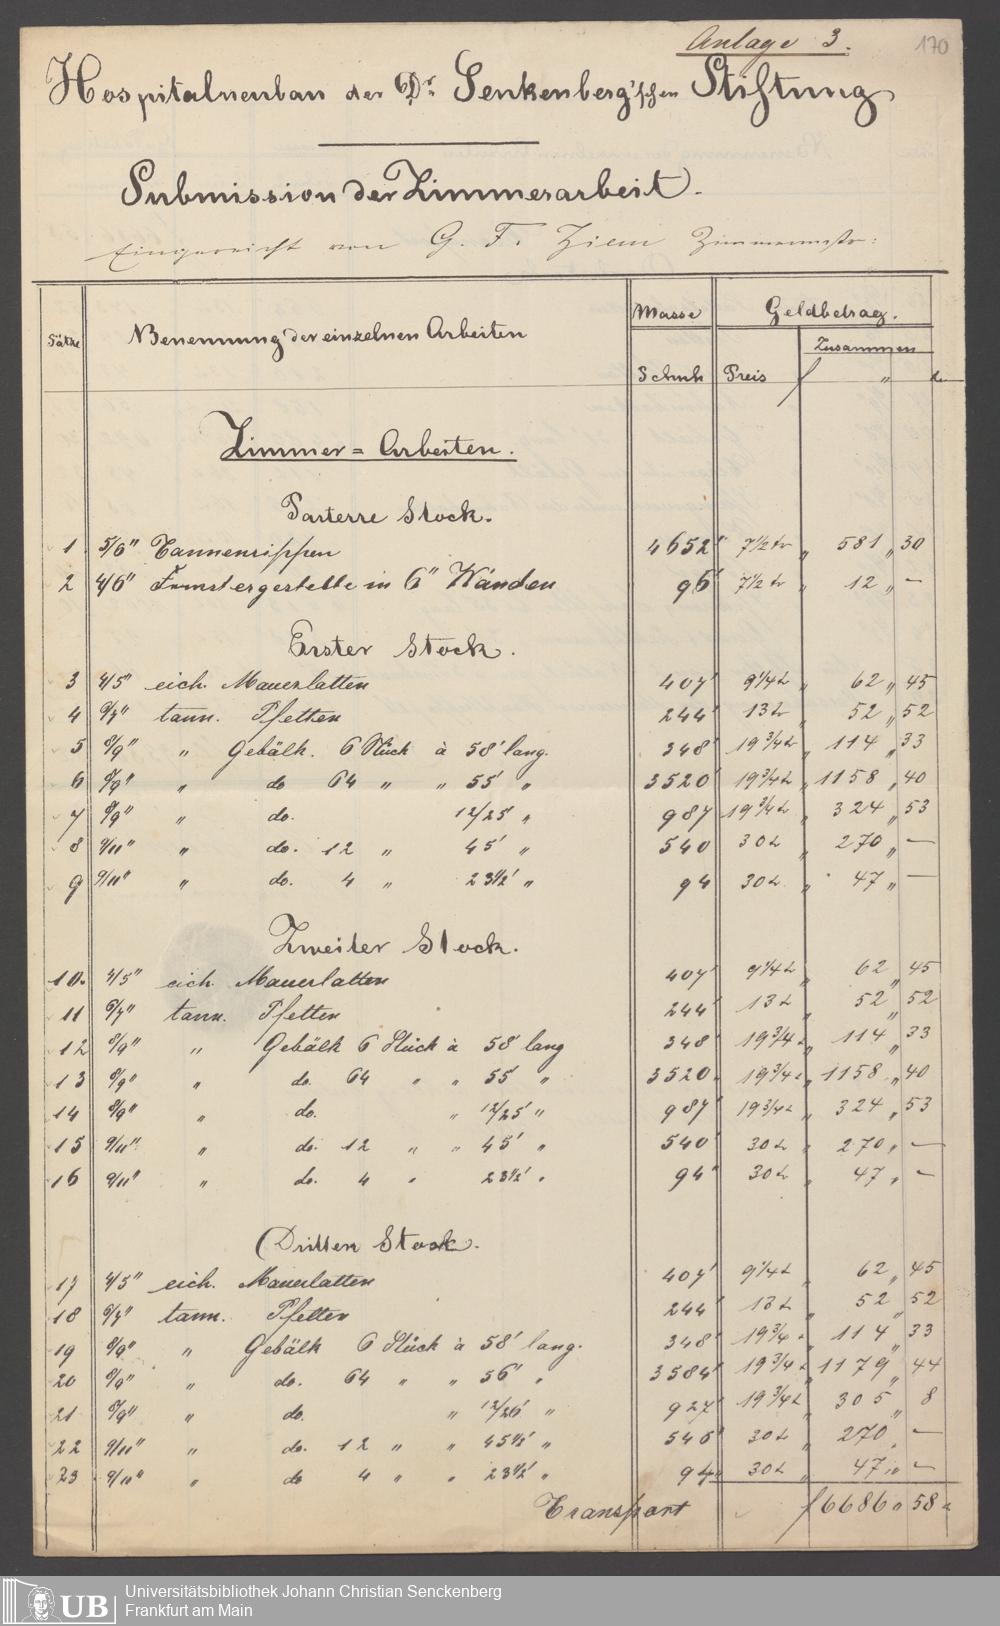 Anlage 3.
170
Hospitalneubau der Dr. Senkenberg'schen Stiftung
Submission der Zimmerarbeit.
Eingereicht von G. F. Ziem Zimmermstr:
Sätze Benennung der einzelnen Arbeiten Masse Schuh Geldbetrag. Preis Zusammen f " kr
Zimmer = Arbeiten.
Parterre Stock.
1 5/6" Tannenrippen 4652' 7½ kr " 581 " 30
2 4/6" Fenstergestelle in 6" Wänden 96' 7½ kr " 12 " —
Erster Stock.
3 4/5" eich. Mauerlatten 407' 9¼ kr " 62 " 45
4 6/7" tann. Pfetten 244' 13 kr " 52 " 52
5 8/9" " Gebälk. 6 Stück à 58' lang. 348' 19¾ kr " 114 " 33
6 8/9" " do 64 " " 55' " 3520' 19¾ kr " 1158 " 40
7 8/9" " do. 12/25' " 987 19¾ kr " 324 " 53
8 9/11" " do. 12 " 45' " 540 30 kr " 270 " —
9 9/11" " do. 4 " 23½' " 94 30 kr " 47 " —
Zweiter Stock.
10. 4/5" eich. Mauerlatten 407' 9¼ kr 62 " 45
11 6/7" tann. Pfetten 244' 13 kr 52 " 52
12 8/9" " Gebälk 6 Stück à 58' lang 348' 19¾ kr 114 " 33
13 8/9" " do. 64 " " 55' " 3520 19¾ kr " 1158 " 40
14 8/9" " do. " 12/25' " 987' 19¾ kr " 324 " 53
15 9/11" " do. 12 " " 45' " 540' 30 kr " 270 " —
16 9/11" " do. 4 " 23½' " 94' 30 kr " 47 " —
Dritten Stock.
17 4/5" eich. Mauerlatten 407' 9¼ kr 62 " 45
18 6/7" tann. Pfetten 244' 13 kr " 52 " 52
19 8/9" " Gebälk 6 Stück à 58' lang. 348' 19¾ kr " 114 " 33
20 8/9" " do. 64 " " 56' " 3584' 19¾ kr " 1179 " 44
21 8/9" " do. " 12/26' " 927' 19¾ kr " 305 " 8
22 9/11" " do. 12 " " 45½' " 546' 30 kr " 270 " —
23 9/11" " do 4 " " 23½' " 94 " 30 kr " 47 " —
Transport f 6686 " 58 kr
UB Universitätsbibliothek Johann Christian Senckenberg
Frankfurt am Main